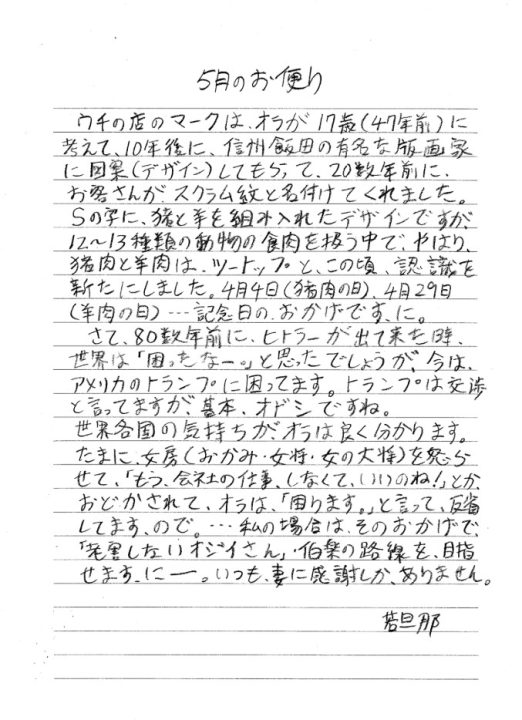 5月のお便り
ウチの店のマークは、オラが17歳(47年前)に
考えて、10年後に、信州飯田の有名な版画家
に図案(デザイン)してもらって、20数年前に、
お客さんが、スクラム紋と名付けてくれました。
Sの字に、猪と羊を組み入れたデザインですが、
12〜13種類の動物の食肉を扱う中で、やはり、
猪肉と羊肉は、ツートップと、この頃、認識を
新たにしました。4月4日(猪肉の日)、4月29日
(羊肉の日)…記念日の、おかげです、に。
さて、80数年前に、ヒトラーが出て来た時、
世界は「困ったなー。」と思ったでしょうが、今は、
アメリカのトランプに困ってます。トランプは交渉
と言ってますが、基本、オドシですね。
世界各国の気持ちが、オラは良く分かります。
たまに、女房(おかみ・女将・女の大将)を怒ら
せて、「もう、会社の仕事、しなくて、いいのね!」とか、
おどかされて、オラは、「困ります。」と言って、反省
してます、ので。…私の場合は、そのおかげで、
「発展しないオジイさん」・伯楽の路線を、目指
せます、にー。いつも、妻に感謝しか、ありません。
若旦那